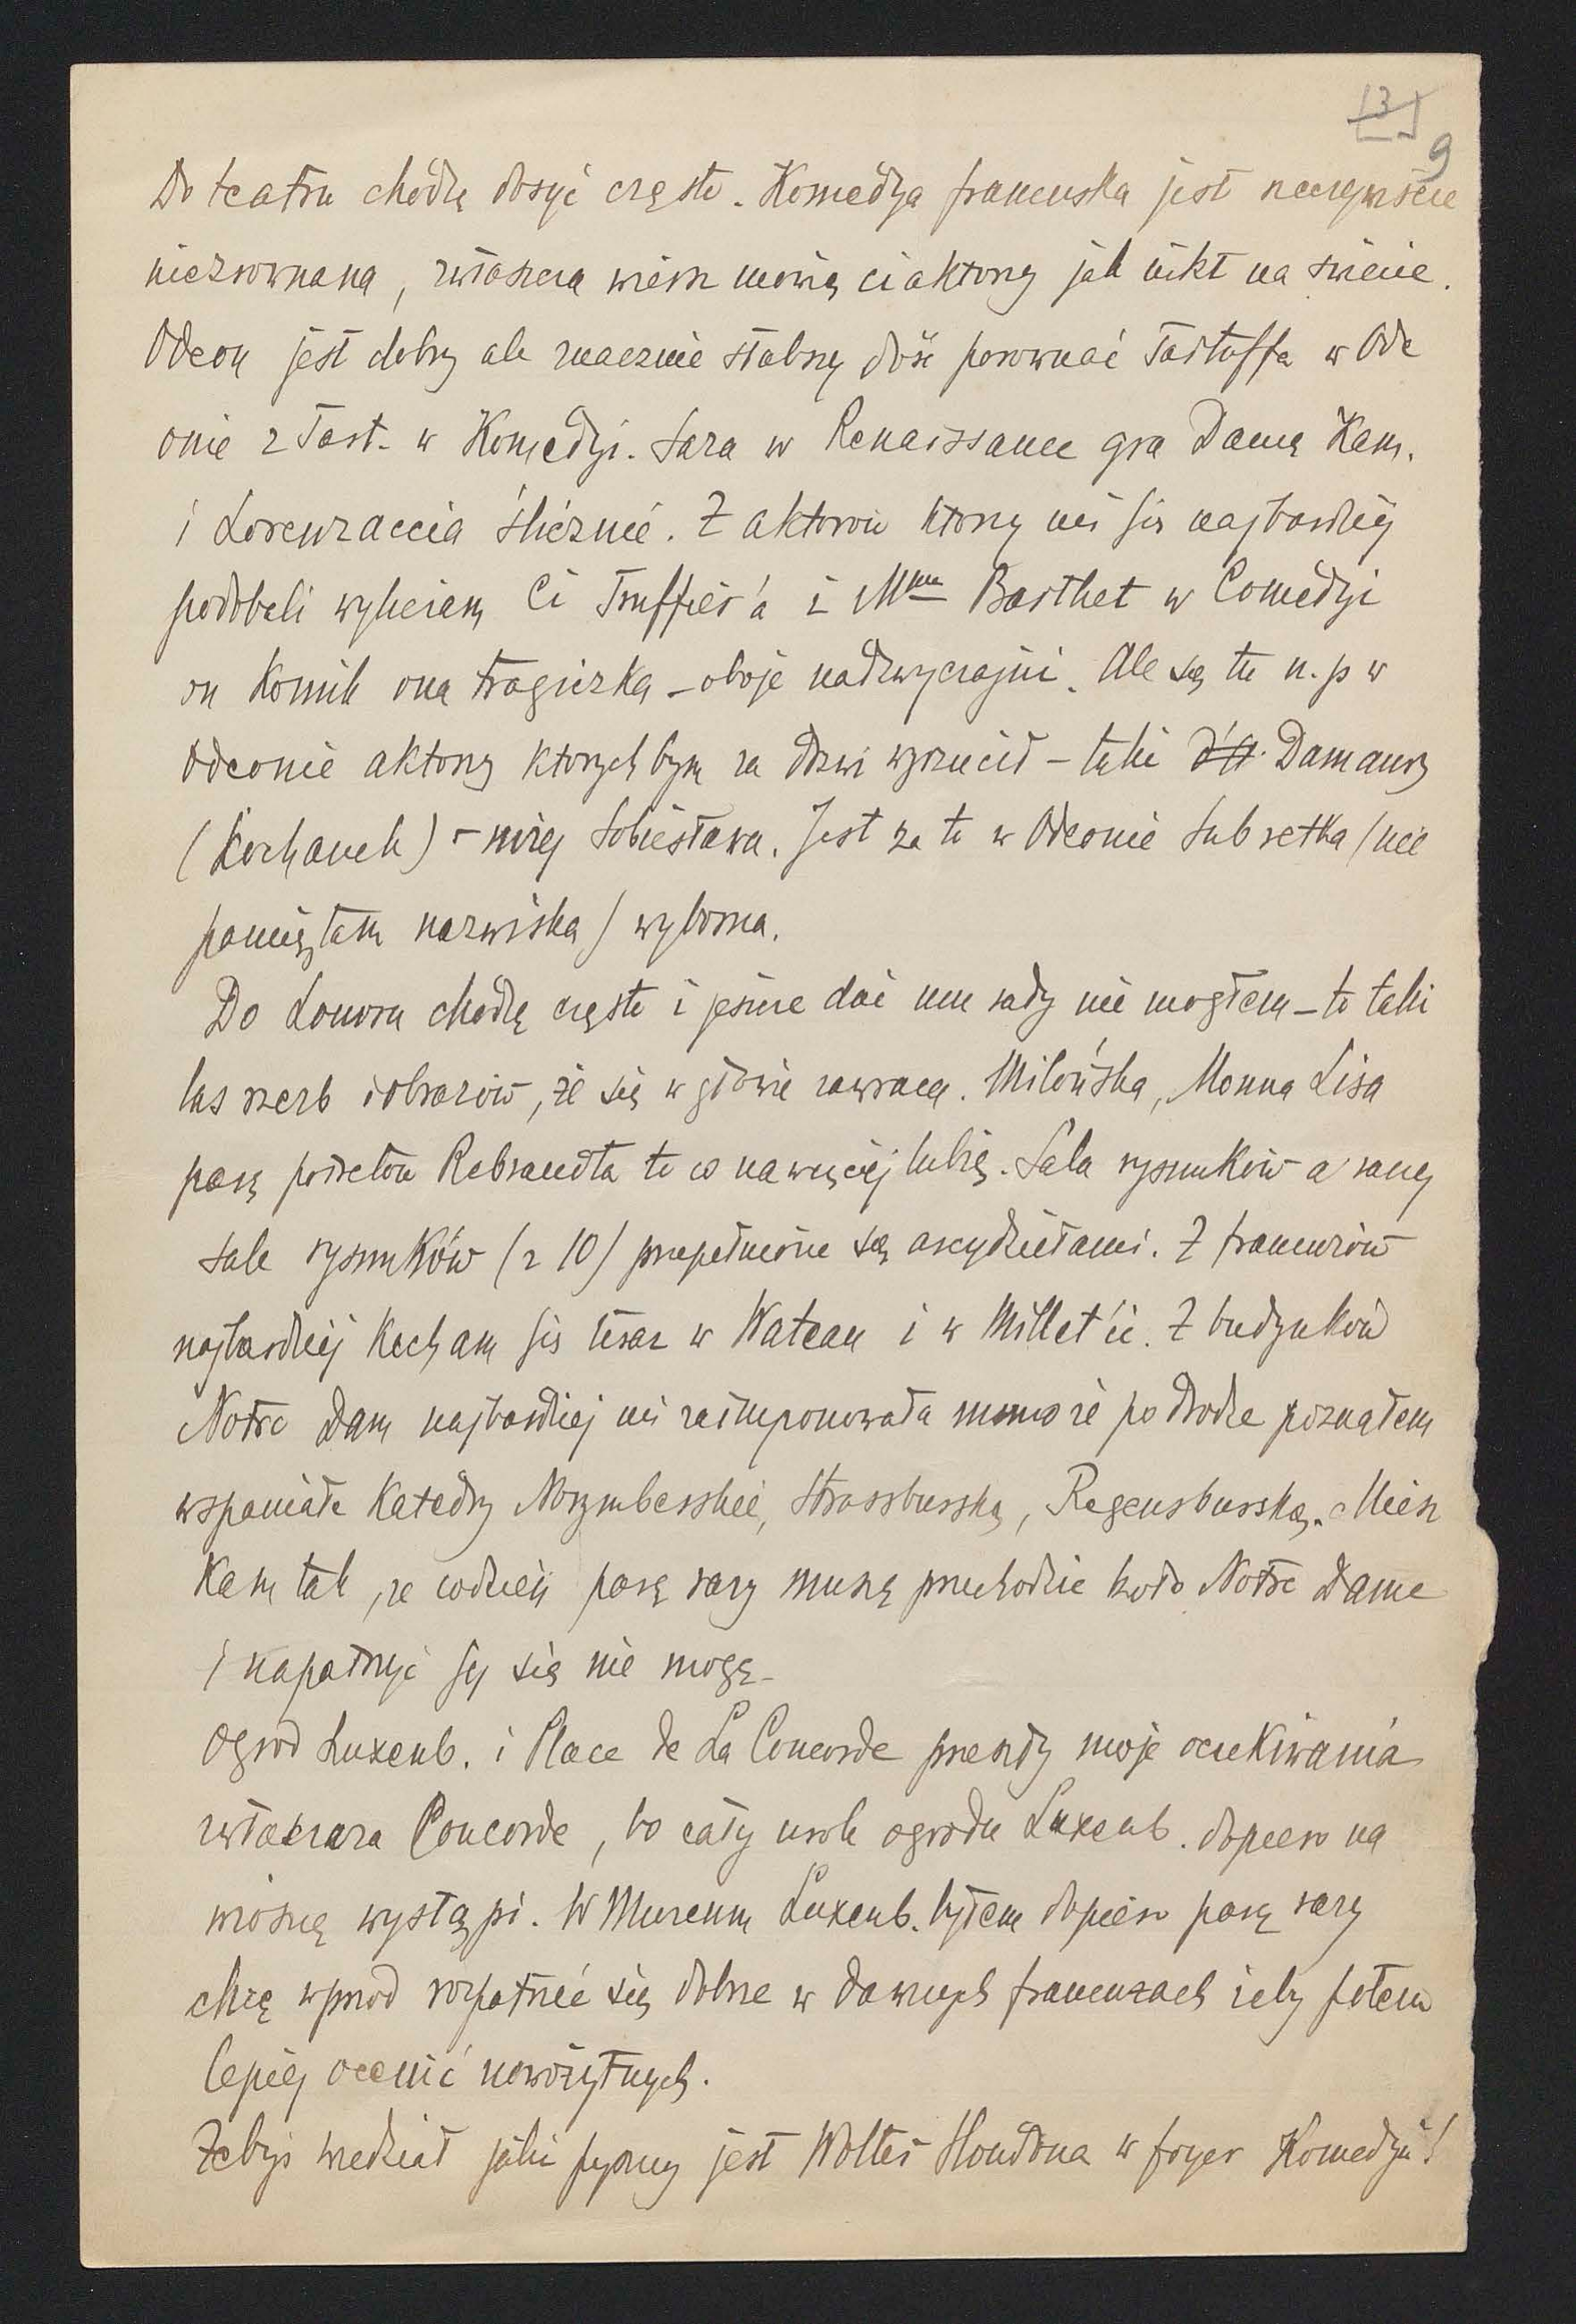 13
9
Do teatru chodzę dosyć często. Komedya francuska jest rzeczywiście
niezrownana, zwłaszcza wiersz mowią ci aktorzy jak nikt na świecie.
Odeon jest dobry ale znacznie słabszy dość porownać Tartuffa w Ode
onie z Tart. w Komedyi. Sara w Renaissance gra Damę Kam.
i Lorenzaccia ślicznie. Z aktorów ktorzy mi się najbardziej
podobali wyliczam Ci Truffier'a i Mme Barthet w Comedyi
on komik ona tragiczka – oboje nadzwyczajni. Ale są tu n.p w
Odeonie aktorzy ktorych bym za drzwi wyrzucił – taki Damaury
(Kochanek) – niżej Sobiesława. Jest za to w Odeonie Subretka (nie
pamiętam nazwiska) wyborna.
Do Louvru chodzę często i jeszcze dać mu rady nie mogłem – to taki
las rzezb i obrazów, że się w głowie zawraca. Milońska, Monna Lisa
parę portretów Rebrandta to co nawięcej lubię. Sala rysunków a raczej
sale rysunków (z 10) przepełnione są arcydziełami. Z francuzów
najbardziej kocham się teraz w Wateau i w Millet'cie. Z budynków
Notre Dam najbardziej mi zaimponowała mimo że po drodze poznałem
wspaniałe Katedry Norymberskie, Strassburską, Regensburską. Miesz
kam tak, że codzień parę razy muszę przechodzić koło Notre Dame
i napatrzyć jej się nie mogę –
Ogrod Luxenb. i Place de La Concorde przeszły moje oczekiwania
zwłaszcza Concorde, bo cały urok ogrodu Luxenb. dopiero na
wiosnę wystąpi. W Muzeum Luxenb. byłem dopiero parę razy
chcę wprzod rozpatrzeć się dobrze w dawnych francuzach żeby potem
lepiej ocenić nowożytnych.
Żebyś wiedział jaki pyszny jest Wolter Houdona w foyer Komedyi!